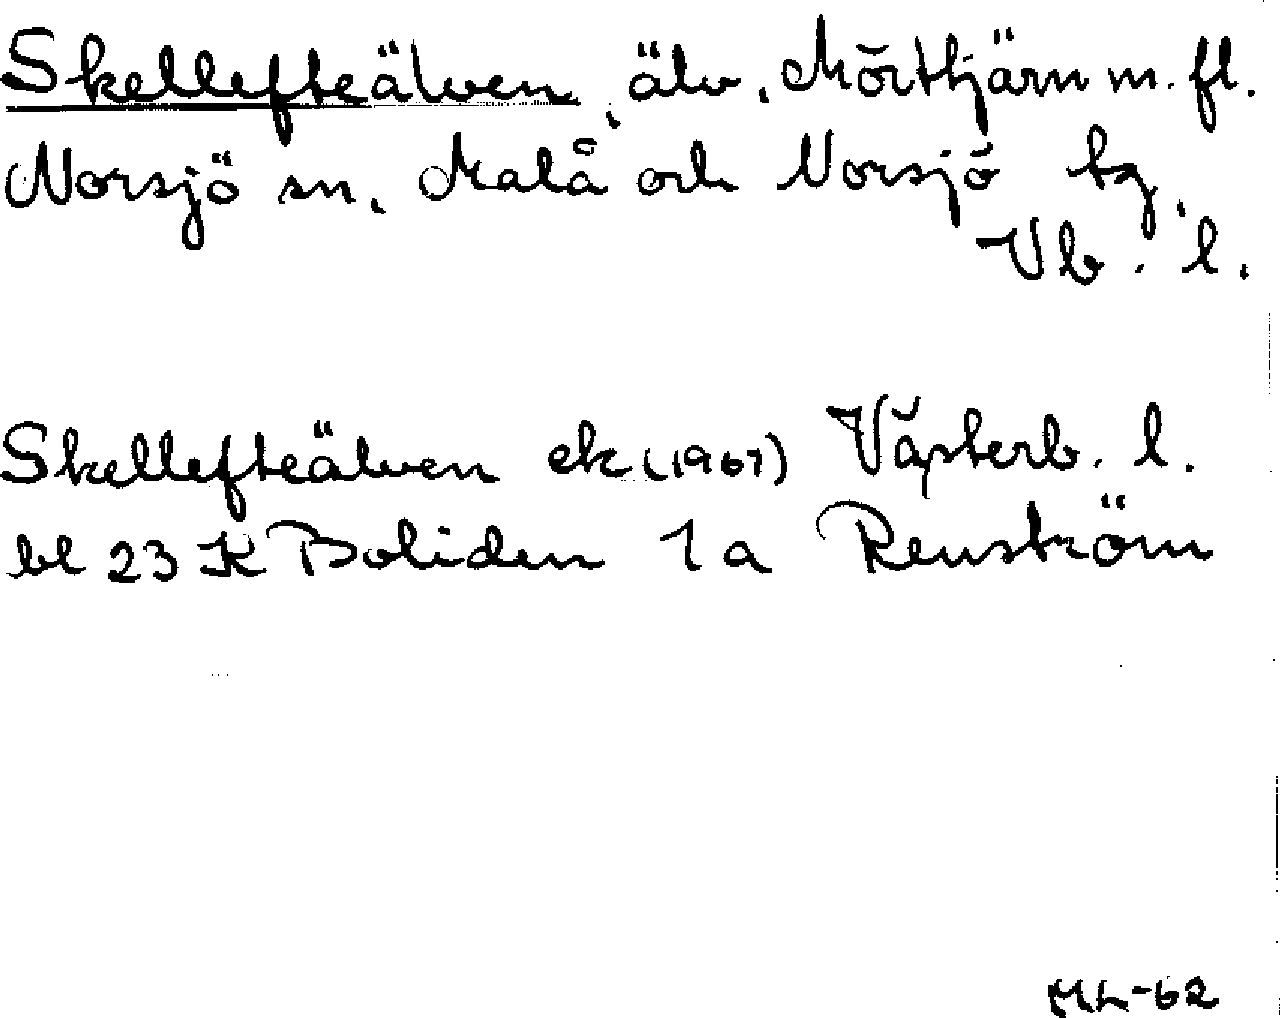 Skellefteälven, älv, Mörttjärn m. fl.
Norsjö sn, Malå och Norsjö tg,
Vb. l.
Skellefteälven ek (1961) Västerb. l.
bl 23 K Boliden 1 a Renström
ML-62